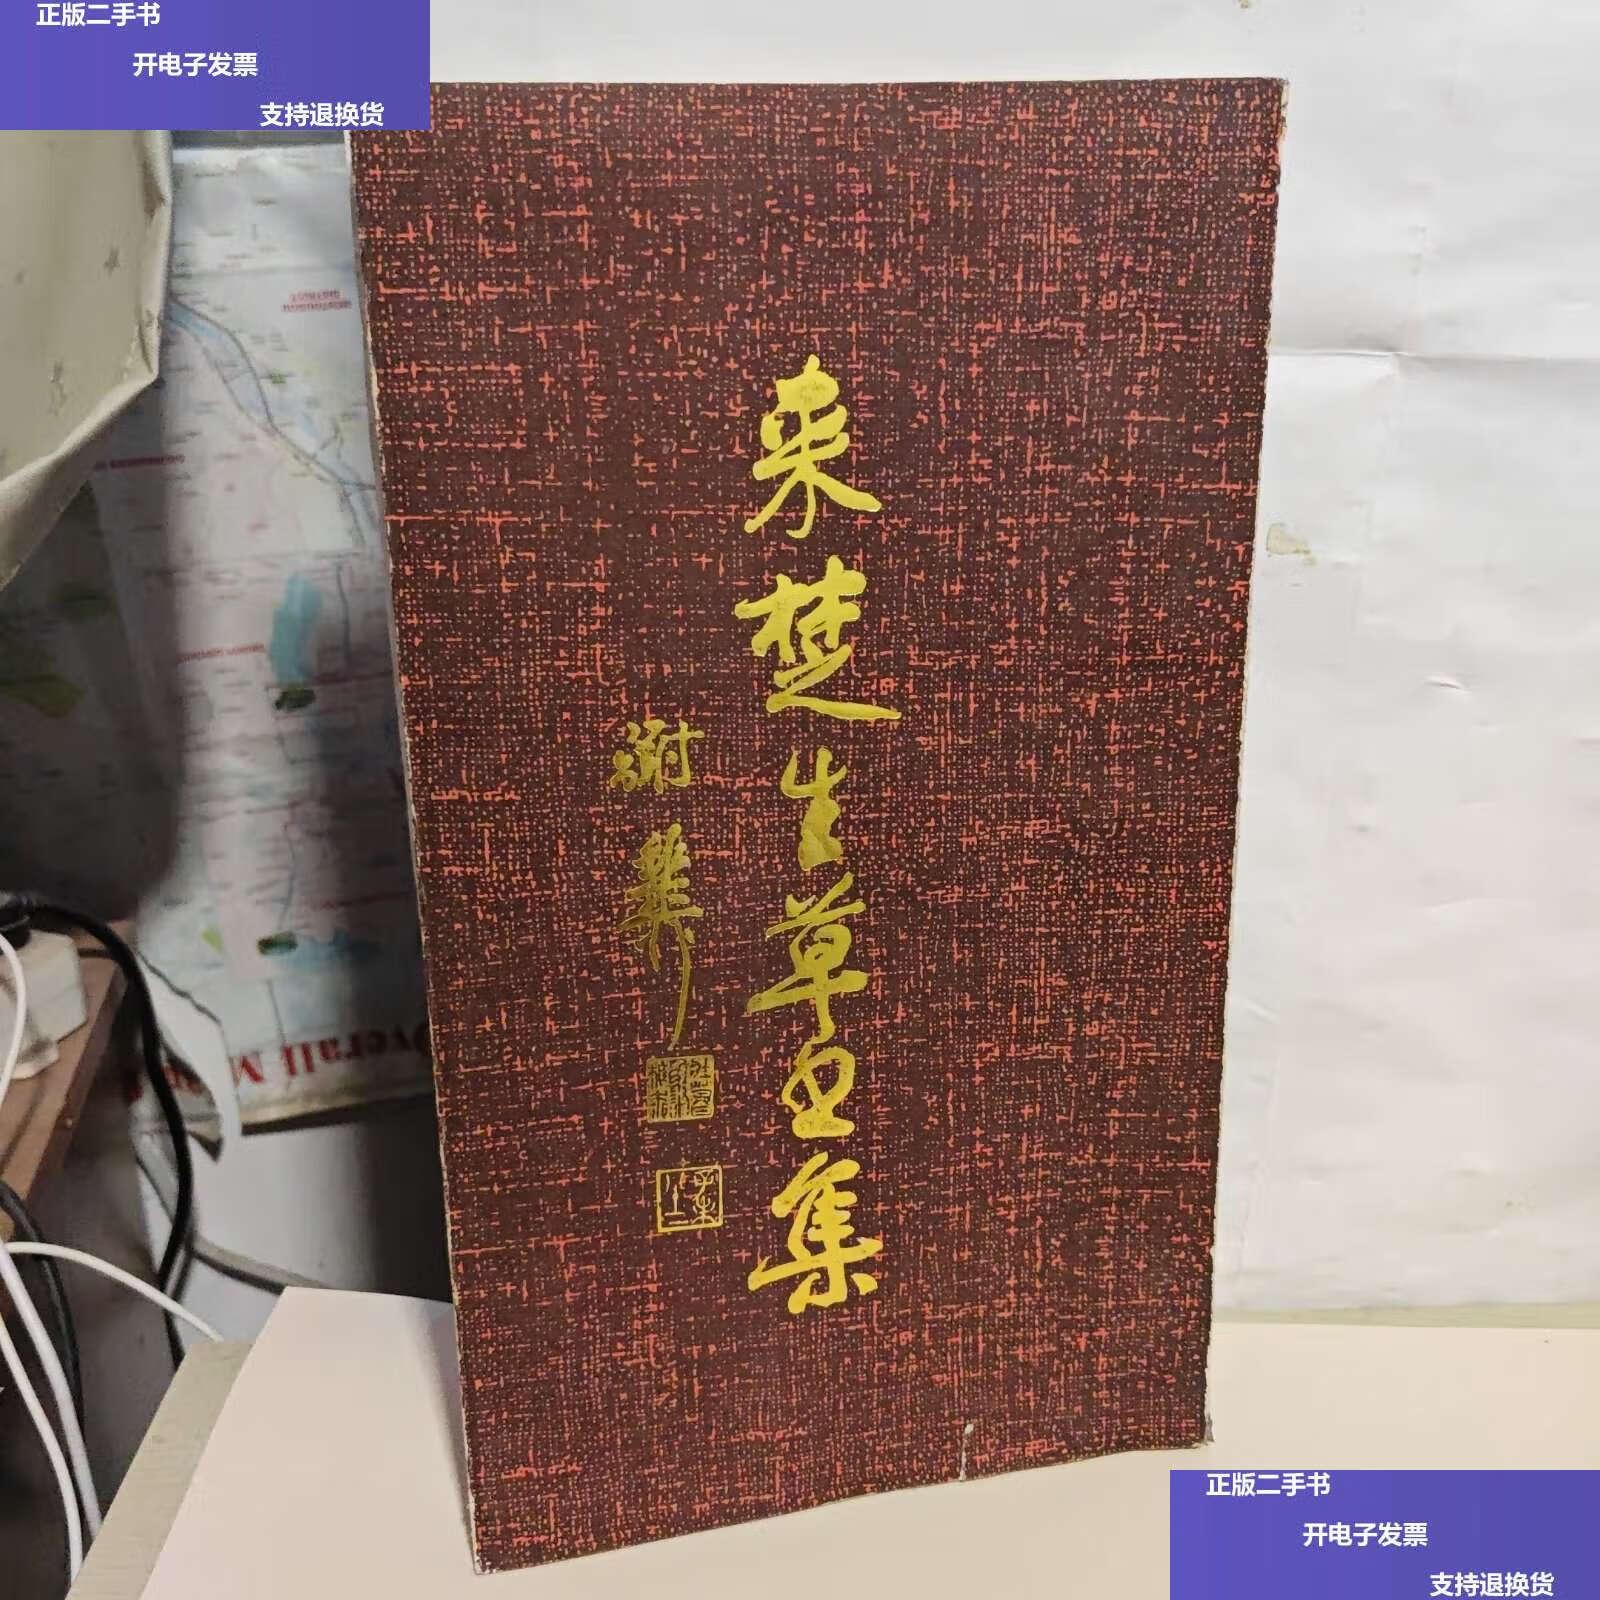 正版二手书
开电子发票
支持退换货
来楚生草书集
谢
Overall M
正版二手书
开电子发票
支持退换货